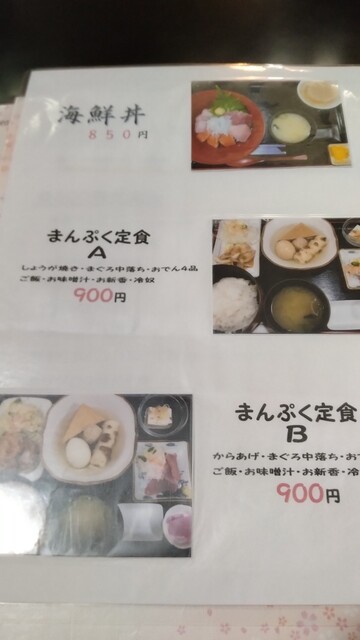 海鮮丼
８５０円
まんぷく定食
A
しょうが焼き・まぐろ中落ち・おでん4品
ご飯・お味噌汁・お新香・冷奴
900円
まんぷく定食
B
からあげ・まぐろ中落ち・お
ご飯・お味噌汁・お新香・冷
900円